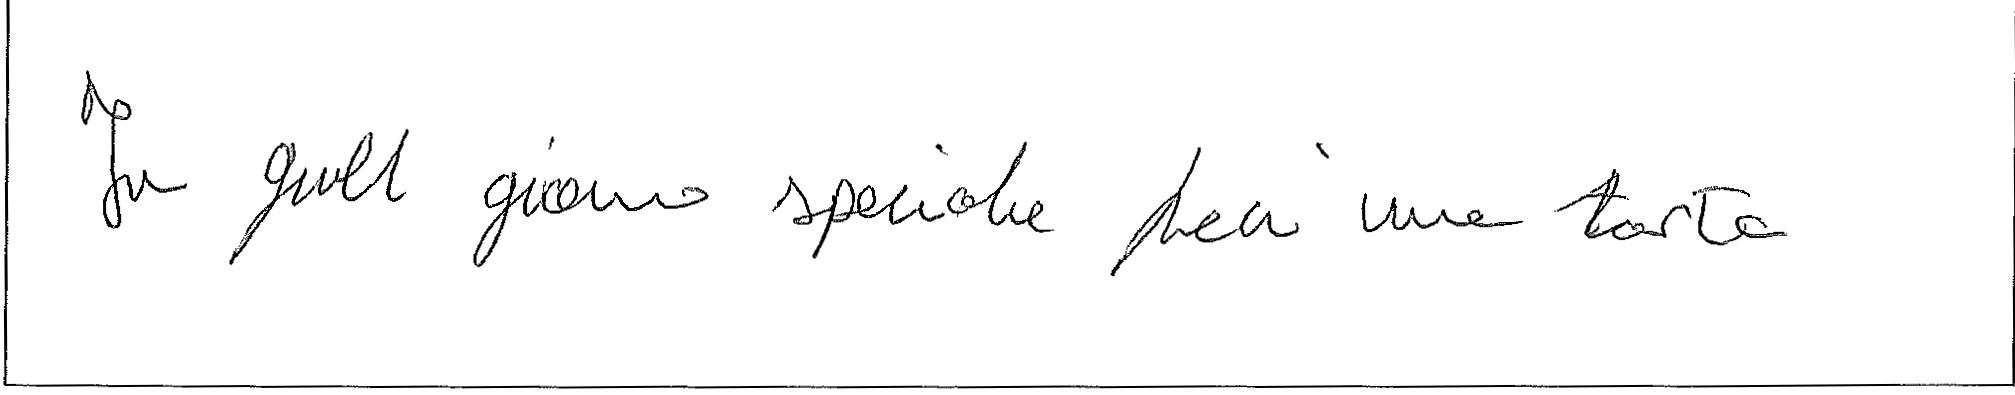 In quell giorno speciale feci una torta